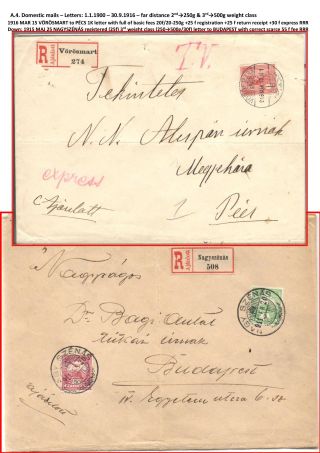 A.4. Domestic mails – Letters: 1.1.1900 – 30.9.1916 – far distance 2nd +250g & 3rd +500g weight class
1916 MAR 15 VÖRÖSMART to PÉCS 1K letter with full of basic fees 20f/20-250g +25 f registration +25 f return receipt +30 f express RRR
Down: 1915 MAJ 25 NAGYSZÉNÁS registered (25f) 3rd weight class (250-+500g/30f) letter to BUDAPEST with correct scarce 55 f fee RRR
Ajánlott
R Vörösmart
274
T.V.
Péterfia
N. N. Aluspán úrnak
Megyeháza
express
Ajánlott
Pécs
Ajánlott
R Nagyszénás
508
Nagyságos
Dr. Bagi Antal
úrnak
Budapest
IV. Egyetem utca 6. sz
NAGYSZÉNÁS
ajánlva